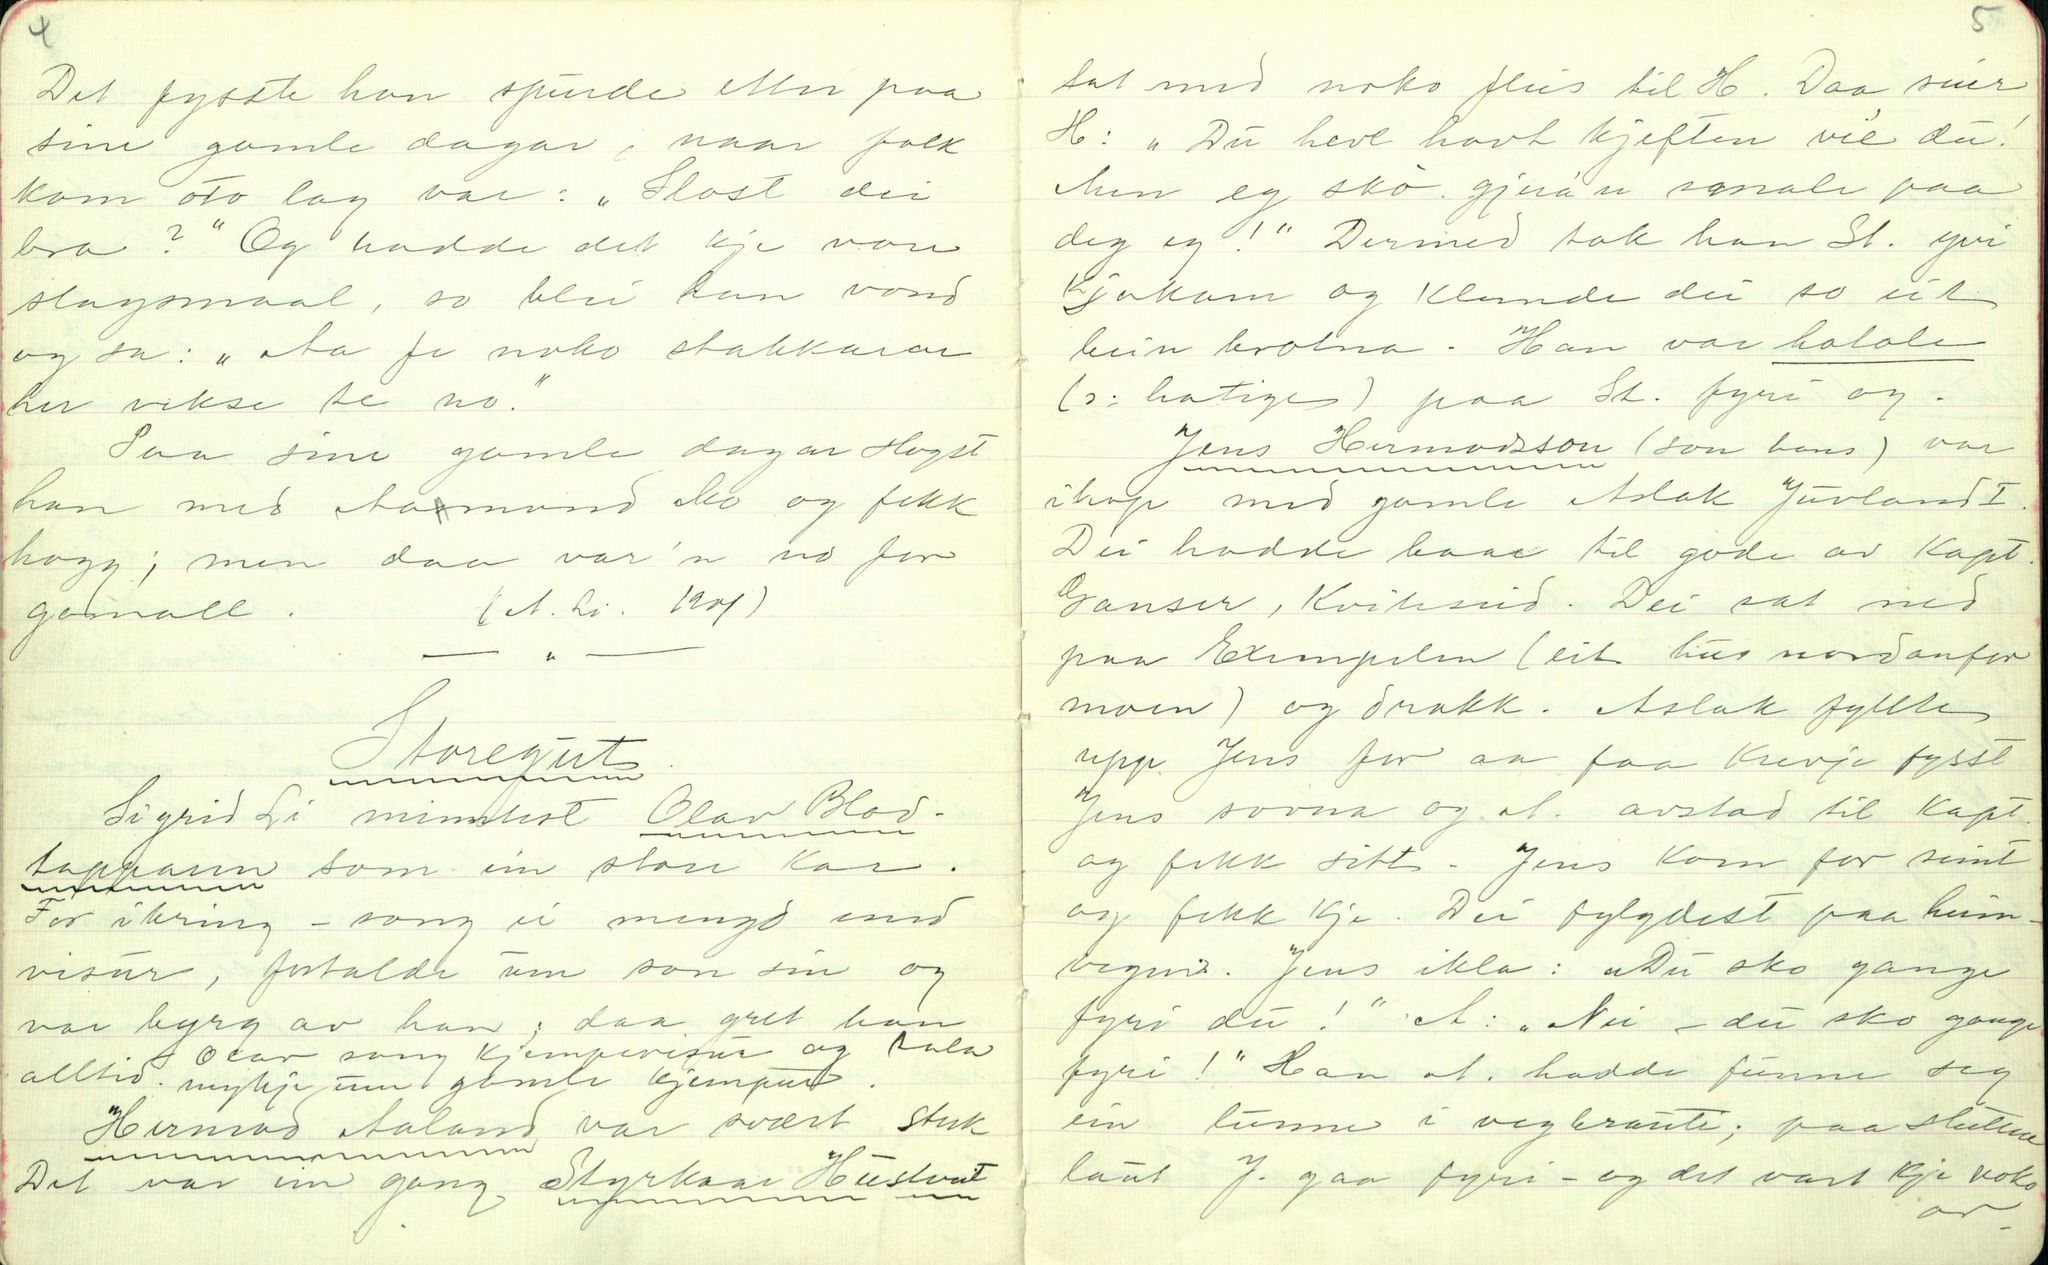 4
Det fysste han spurde etter paa
sine gamle dagar, naar folk
kom oto lag var: „Slost dei
bra?" Og hadde det kje vore
slagsmaal, so blei han vond
og sa: „Aa fe noko stakkarar
her vekse te no."
Paa sine gamle dagar slogst
han med Aasmund Mo og fekk
hogg; men daa var'n no for
gamall. (A. Li. 1901)
— „ —
Storegut.
Sigrid Li mindest Olav Blod-
tapparen som ein stor kar.
For ikring – song ei mengd med
visur, fortalde um son sin og
var byrg av han; daa gret han
alltid. Olav song kjempevisur og tala
mykje um gamle kjempur.
Hermod Aaland var svært sterk
Det var ein gong Styrkaar Hustveit
5
sat med noko flus til H. Daa seier
H: „Du heve havt kjeften vie du!
Men eg sko gjera'n smale paa
deg eg!" Dermed tok han St. yvi
kjakann og klemde dei so eit
bein brotna. Han var hatale
(ɔ: hatige) paa St. fyri og.
Jens Hermodsson (son hans) var
ihop med gamle Aslak Juvland I.
Dei hadde baae til gode av Kapt.
Ganser, Kviteseid. Dei sat ned
paa Exempelen (eit hus nordanfor
moen) og drakk. Aslak fyllte
upp Jens for aa faa krevje fysst
Jens sovna og A. avstad til Kapt.
og fekk sitt. Jens kom for seint
og fekk kje. Dei fylgdest paa heim-
vegen. Jens ikla: „Du sko gange
fyri du!" A: „Nei – du sko gange
fyri!" Han A. hadde funne seg
ein lunne i vegbrauti; paa slutten
laut J. gaa fyri – og det vart kje noko
av.